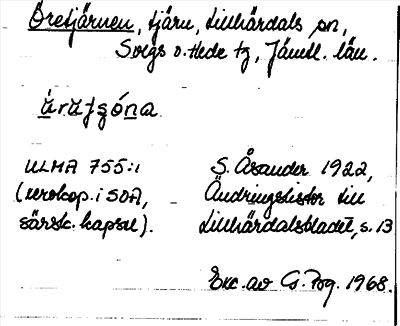 Öretjärnen, tjärn, Lillhärdals sn,
Svegs o. Hede tg, Jämtl. län.
ULMA 755:1
(xerokop. i SOA,
särsk. kapsel).
S. Åsander 1922,
Ändringslistor till
Lillhärdalsbladet, s. 13
Exc. av G. Pog. 1968.